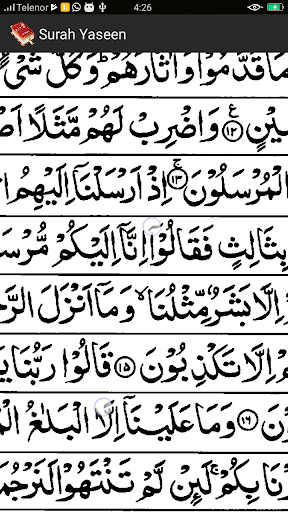 Telenor 4:26
Surah Yaseen
مَاقَدَّمُوْا وَاٰثَارَهُمْ ؕ وَكُلَّ شَیْ
یْنٍ ۱۲ وَاضْرِبْ لَهُمْ مَّثَلًا اَصْ
الْمُرْسَلُوْنَ ۚ ۱۳ اِذْ اَرْسَلْنَاۤ اِلَیْهِمُ
بِثَالِثٍ فَقَالُوْۤا اِنَّاۤ اِلَیْكُمْ مُّرْسَ
اِلَّا بَشَرٌ مِّثْلُنَا ۙ وَمَاۤ اَنْزَلَ الرَّ
مْ اِلَّا تَكْذِبُوْنَ ۱۵ قَالُوْا رَبُّنَا یَ
وْنَ ۱۶ وَمَا عَلَیْنَاۤ اِلَّا الْبَلٰغُ الْمُ
رْنَا بِكُمْ ۚ لَئِنْ لَّمْ تَنْتَهُوْا لَنَرْجُمَ